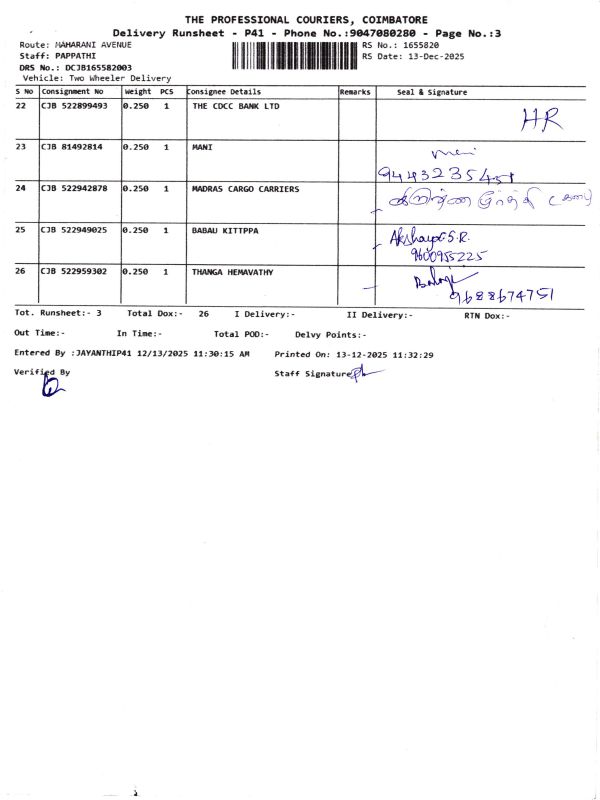 THE PROFESSIONAL COURIERS, COIMBATORE
Delivery Runsheet - P41 - Phone No.:9047080280 - Page No.:3
Route: MAHARANI AVENUE RS No.: 1655820
Staff: PAPPATHI RS Date: 13-Dec-2025
DRS No.: DCJB165582003
Vehicle: Two Wheeler Delivery
S No Consignment No Weight PCS Consignee Details Remarks Seal & Signature
22 CJB 522899493 0.250 1 THE CDCC BANK LTD
HR
23 CJB 81492814 0.250 1 MANI
9443235451
24 CJB 522942878 0.250 1 MADRAS CARGO CARRIERS
25 CJB 522949025 0.250 1 BABAU KITTPPA
Akshaya S.R.
9600955225
26 CJB 522959302 0.250 1 THANGA HEMAVATHY
Balaji
9688674751
Tot. Runsheet:- 3 Total Dox:- 26 I Delivery:- II Delivery:- RTN Dox:-
Out Time:- In Time:- Total POD:- Delvy Points:-
Entered By :JAYANTHIP41 12/13/2025 11:30:15 AM Printed On: 13-12-2025 11:32:29
Verified By Staff Signature